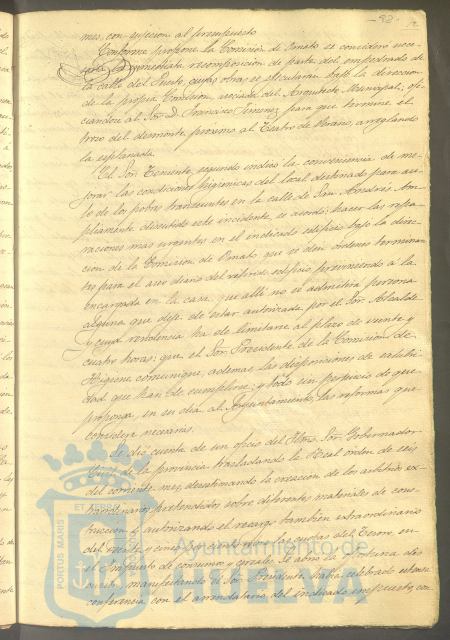 92
mes, con sujecion al presupuesto
Conforme propone la Comisión de Ornato se considero nece-
saria la inmediata recomposición de parte del empedrado de
la calle del Puerto, cuyas obras se ejecutarán bajo la dirección
de la propia Comision, asociada del Arquitecto Municipal, ofi-
ciandose al Sor. D. Francisco Jimenez para que termine el
trozo del desmonte proximo al Teatro de Verano, arreglando
la esplanada
El Sor. Teniente segundo indicó la conveniencia de me-
jorar las condiciones higienicas del local destinado para asi-
lo de los pobres transeuntes en la calle de San Andrés. Am-
pliamente discutido este incidente, se acordó: hacer las repa-
raciones mas urgentes en el indicado edificio bajo la direc-
cion de la Comision de Ornato que se den órdenes terminan-
tes para el aseo diario del referido edificio previniendo a la
encargada en la casa, que alli no se admitirá persona
alguna que deje de estar autorizada por el Sor. Alcalde
y cuya residencia ha de limitarse al plazo de veinte y
cuatro horas: que el Sor. Presidente de la Comision de
Higiene comunique, ademas, las disposiciones de salubri-
dad que han de cumplirse; y todo sin perjuicio de que
proponga, en su dia al Ayuntamiento, las reformas que
considere necesarias.
Se dió cuenta de un oficio del Iltmo. Sor. Gobernador
Civil de la provincia trasladando la Real órden de seis
del corriente mes, desestimando la creacion de los arbitrios ex-
traordinarios pretendidos sobre diferentes materiales de cons-
truccion y autorizando el recargo tambien extraordinario
del veinte y cinco por ciento sobre las cuotas del Tesoro, en
el impuesto de consumos y cereales. Se abrió la oportuna dis-
cusión, manifestando el Sor. Presidente, habia celebrado estensa
conferencia con el arrendatario del indicado impuesto, con
PORTUS MARIS ET TERRÆ
Ayuntamiento de
HUELVA